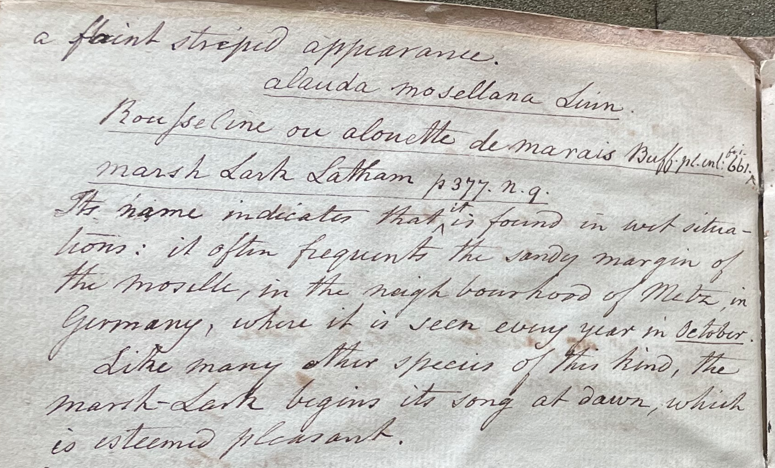 a faint striped appearance.
alauda mosellana Linn.
Rousseline ou alouette de marais Buff. pl. enl. 661.
marsh Lark Latham p 377. n. 9.
Its name indicates that it is found in wet situa-
tions: it often frequents the sandy margin of
the moselle, in the neighbourhood of Metz, in
Germany, where it is seen every year in October.
Like many other species of this kind, the
marsh-Lark begins its song at dawn, which
is esteemed pleasant.